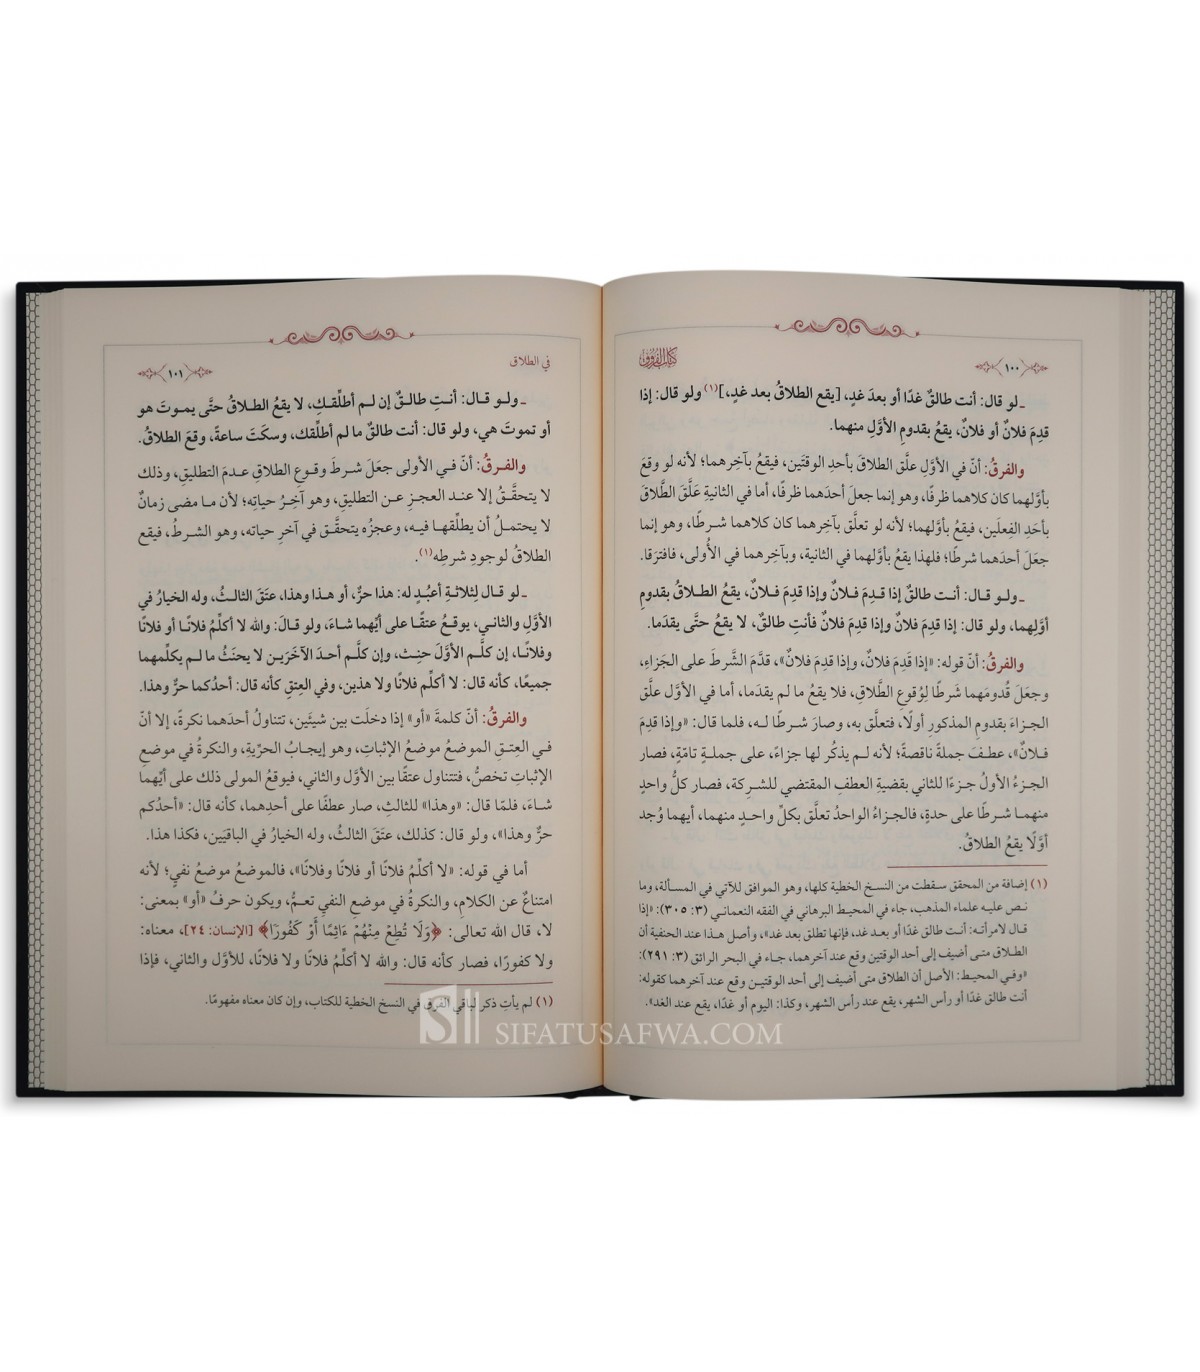 ١٠٠
كتاب الفروق
ـ لو قال: أنت طالقٌ غدًا أو بعدَ غدٍ، [يقع الطلاقُ بعد غدٍ،](١) ولو قال: إذا
قدِمَ فلانٌ أو فلانٌ، يقعُ بقدومِ الأوَّلِ منهما.
والفرقُ: أنّ في الأوَّل علَّق الطلاقَ بأحدِ الوقتَين، فيقعُ بآخِرهما؛ لأنه لو وقعَ
بأوَّلهما كان كلاهما ظرفًا، وهو إنما جعلَ أحدَهما ظرفًا، أما في الثانيةِ عَلَّقَ الطَّلاقَ
بأحَدِ الفِعلَين، فيقعُ بأوَّلهما؛ لأنه لو تعلَّق بآخرهما كان كلاهما شرطًا، وهو إنما
جعَلَ أحدَهما شرطًا؛ فلهذا يقعُ بأوَّلهما في الثانية، وبآخِرهما في الأُولى، فافترَقا.
ـ ولـو قال: أنـت طالقٌ إذا قـدِمَ فـلانٌ وإذا قدِمَ فـلانٌ، يقعُ الطـلاقُ بقدومِ
أوَّلِهما، ولو قال: إذا قدِمَ فلانٌ وإذا قدِمَ فلانٌ فأنتِ طالقٌ، لا يقعُ حتَّى يقدَما.
والفرقُ: أنّ قوله: «إذا قَدِمَ فلانٌ، وإذا قدِمَ فلانٌ»، قدَّمَ الشَّرطَ على الجَزاءِ،
وجعَلَ قُدومَهما شَرطًا لِوُقوعِ الطَّلاقِ، فلا يقعُ ما لم يقدَما، أما في الأوَّل علَّق
الجـزاءَ بقدومِ المذكورِ أولًا، فتعلَّق به، وصارَ شـرطًا لـه، فلما قال: «وإذا قدِمَ
فلانٌ»، عطـفَ جملةً ناقصةً؛ لأنه لـم يذكُر لها جزاءً، على جملةٍ تامّةٍ، فصار
الجزءُ الأولُ جزءًا للثاني بقضيةِ العطفِ المقتضي للشركة، فصار كلُّ واحدٍ
منهمـا شـرطًا على حدةٍ، فالجـزاءُ الواحدُ تعلَّق بكلِّ واحـدٍ منهما، أيهما وُجد
أوَّلًا يقعُ الطلاقُ.
(١) إضافة من المحقق سقطت من النسخ الخطية كلها، وهو الموافق للآتي في المسألة، وما
نـص عليـه علماء المذهب، جاء في المحيـط البرهاني في الفقه النعماني (٣: ٣٠٥): «إذا
قال لامرأته: أنـت طالق غدًا أو بعـد غد، فإنها تطلق بعد غد»، وأصل هذا عند الحنفية أن
الطـلاق متـى أضيف إلى أحد الوقتين وقع عند آخرهما، جـاء في البحر الرائق (٣: ٢٩١):
«وفـي المحيط: الأصل أن الطلاق متى أضيف إلى أحد الوقتيـن وقع عند آخرهما كقوله:
أنت طالق غدًا أو رأس الشهر، يقع عند رأس الشهر، وكذا: اليوم أو غدًا، يقع عند الغد».
في الطلاق
١٠١
ـ ولـو قـال: أنـتِ طالـقٌ إن لـم أطلِّقـكِ، لا يقـعُ الطـلاقُ حتَّى يمـوتَ هو
أو تموتَ هي، ولو قال: أنت طالقٌ ما لم أطلِّقك، وسكتَ ساعةً، وقعَ الطلاقُ.
والفرقُ: أنّ فـي الأولى جعَـلَ شـرطَ وقـوعِ الطلاقِ عـدمَ التطليقِ، وذلك
لا يتحقَّـقُ إلا عنـد العجـزِ عـن التطليقِ، وهو آخِـرُ حياتِه؛ لأن مـا مضى زمانٌ
لا يحتمـلُ أن يطلِّقهـا فيـه، وعجزُه يتحقَّـق في آخرِ حياته، وهو الشـرطُ، فيقع
الطلاقُ لوجودِ شرطِه(١).
ـ لو قال لِثلاثةِ أعبُـدٍ له: هذا حرٌّ، أو هـذا وهذا، عتَقَ الثالثُ، وله الخيارُ في
الأوَّلِ والثانـي، يوقـعُ عتقًـا على أيِّهما شـاءَ، ولو قالَ: والله لا أكلِّمُ فلانًـا أو فلانًا
وفلانًـا، إن كلَّـم الأوَّلَ حنِـث، وإن كلَّـم أحدَ الآخَرَيـن لا يحنَـثُ ما لـم يكلِّمهما
جميعًا، كأنه قال: لا أكلِّم فلانًا ولا هذين، وفي العِتقِ كأنه قال: أحدُكما حرٌّ وهذا.
والفرقُ: أنّ كلمةَ «أو» إذا دخلَت بين شيئَين، تتناولُ أحدَهما نكرةً، إلا أنّ
فـي العِتـقِ الموضـعُ موضعُ الإثباتِ، وهو إيجابُ الحرّيةِ، والنكرةُ في موضعِ
الإثباتِ تخصُّ، فتتناول عتقًا بين الأوَّل والثاني، فيوقعُ المولى ذلك على أيِّهما
شـاءَ، فلمّا قال: «وهذا» للثالثِ، صار عطفًا على أحدِهما، كأنه قال: «أحدُكم
حرٌّ وهذا»، ولو قال: كذلك، عتَقَ الثالثُ، وله الخيارُ في الباقيَين، فكذا هذا.
أما في قوله: «لا أكلِّمُ فلانًا أو فلانًا وفلانًا»، فالموضعُ موضعُ نفيٍ؛ لأنه
امتناعٌ عن الكلامِ، والنكرةُ في موضعِ النفيِ تعـمُّ، ويكون حرفُ «أو» بمعنى:
لا، قال الله تعالى: ﴿وَلَا تُطِعۡ مِنۡهُمۡ ءَاثِمًا أَوۡ كَفُورًا﴾ [الإنسان: ٢٤]، معناه:
ولا كفورًا، فصار كأنه قال: والله لا أكلِّمُ فلانًا ولا فلانًا، للأوَّل والثاني، فإذا
(١) لم يأتِ ذكر لباقي الفرق في النسخ الخطية للكتاب، وإن كان معناه مفهومًا.
SIFATUSAFWA.COM